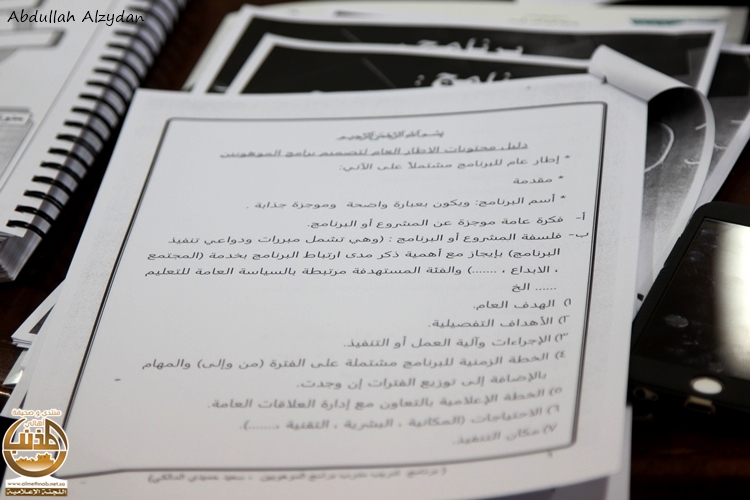 Abdullah Alzydan
برنامج
برنامج :
بسم الله الرحمن الرحيم
دليل محتويات الاطار العام لتصميم برامج الموهوبين
* إطار عام للبرنامج مشتملاً على الآتي:
* مقدمة
* أسم البرنامج: ويكون بعبارة واضحة وموجزة جذابة .
أ- فكرة عامة موجزة عن المشروع أو البرنامج.
ب- فلسفة المشروع أو البرنامج : (وهي تشمل مبررات ودواعي تنفيذ
البرنامج) بإيجاز مع أهمية ذكر مدى ارتباط البرنامج بخدمة (المجتمع
، الابداع ، .......) والفئة المستهدفة مرتبطة بالسياسة العامة للتعليم
...... الخ
١) الهدف العام.
٢) الأهداف التفصيلية.
٣) الإجراءات وآلية العمل أو التنفيذ.
٤) الخطة الزمنية للبرنامج مشتملة على الفترة (من وإلى) والمهام
بالإضافة إلى توزيع الفترات إن وجدت.
٥) الخطة الإعلامية بالتعاون مع إدارة العلاقات العامة.
٦) الاحتياجات (المكانية ، البشرية ، التقنية ،......).
٧) مكان التنفيذ.
(برنامج تدريب مدرب برامج الموهوبين ، سعيد حميدي المالكي)
منتدى و صحيفة
أهالي
المذنب
www.almethnab.net.sa
اللجنة الاعلامية